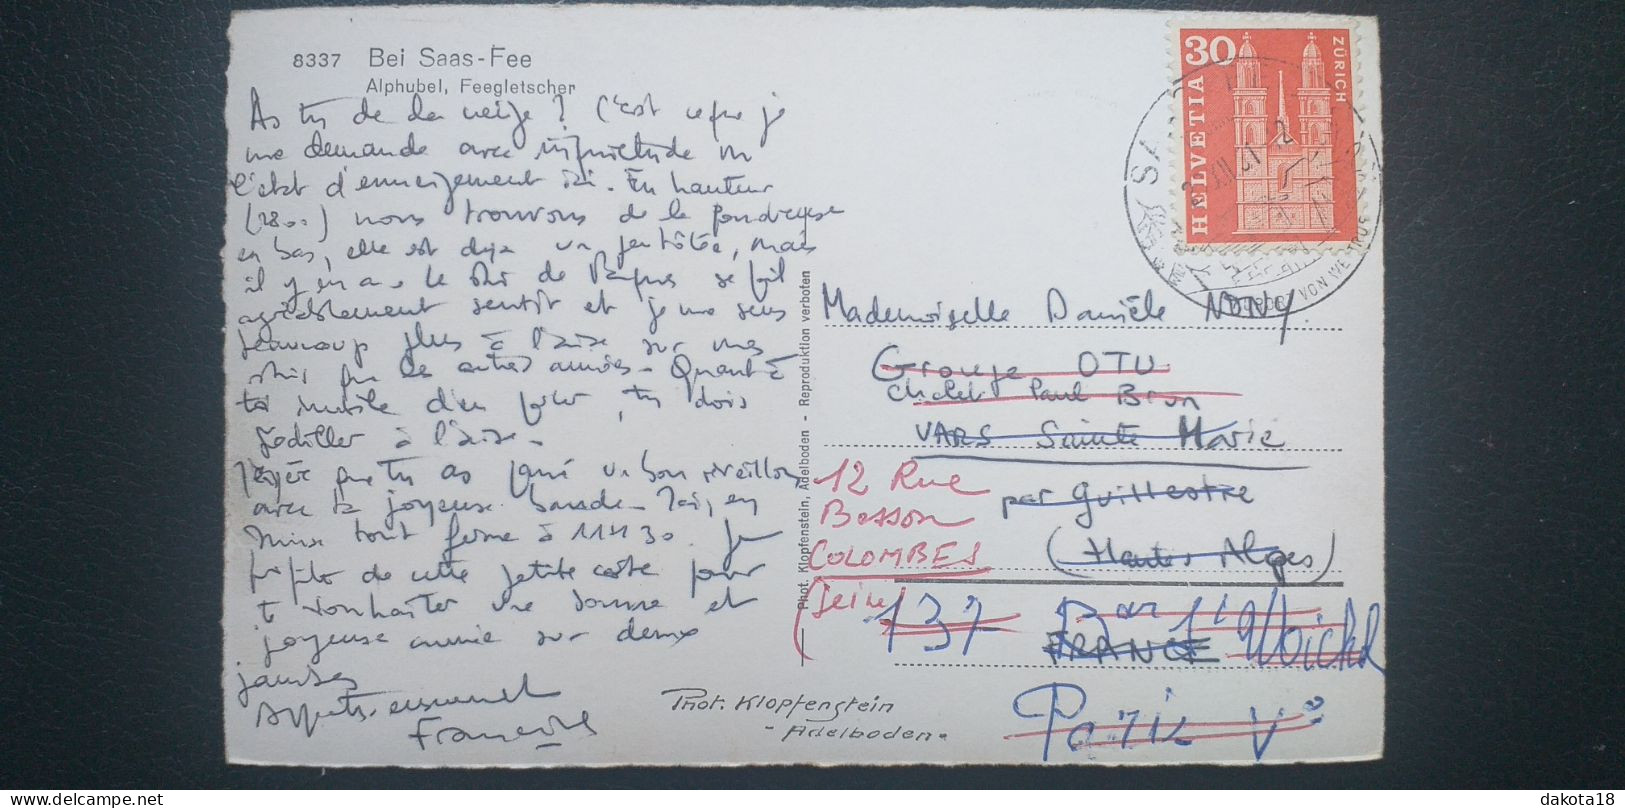 8337 Bei Saas-Fee
Alphubel, Feegletscher
As tu de la neige ? C'est ce que je
me demande avec inquiétude vu
l'état d'enneigement ici. En hauteur
(2800) nous trouvons de la poudreuse
en bas, elle est déjà un peu tôlée, mais
il y en a. le de Pâques se fait
agréablement sentir et je me sens
beaucoup plus à l'aise sur mes
skis que les autres années. Quant à
toi inutile d'en parler, tu dois
godiller à l'aise.
J'espère que tu as passé un bon réveillon
avec ta joyeuse bande. Ici, en
Suisse tout ferme à 11H30. Je
profite de cette petite carte pour
te souhaiter une bonne et
joyeuse année sur deux
jambes
Affectueusement
François
Phot. Klopfenstein, Adelboden - Reproduktion verboten
Phot. Klopfenstein
- Adelboden -
30
HELVETIA
ZÜRICH
KURORT VON WELTRUF
Mademoiselle Danièle NONY
Groupe OTU
Chalet Paul Bron
VARS Sainte Marie
par Guillestre
(Hautes Alpes)
FRANCE
12 Rue
Besson
COLOMBES
(Seine)
137 Bar l'
Paris V°
dakota18